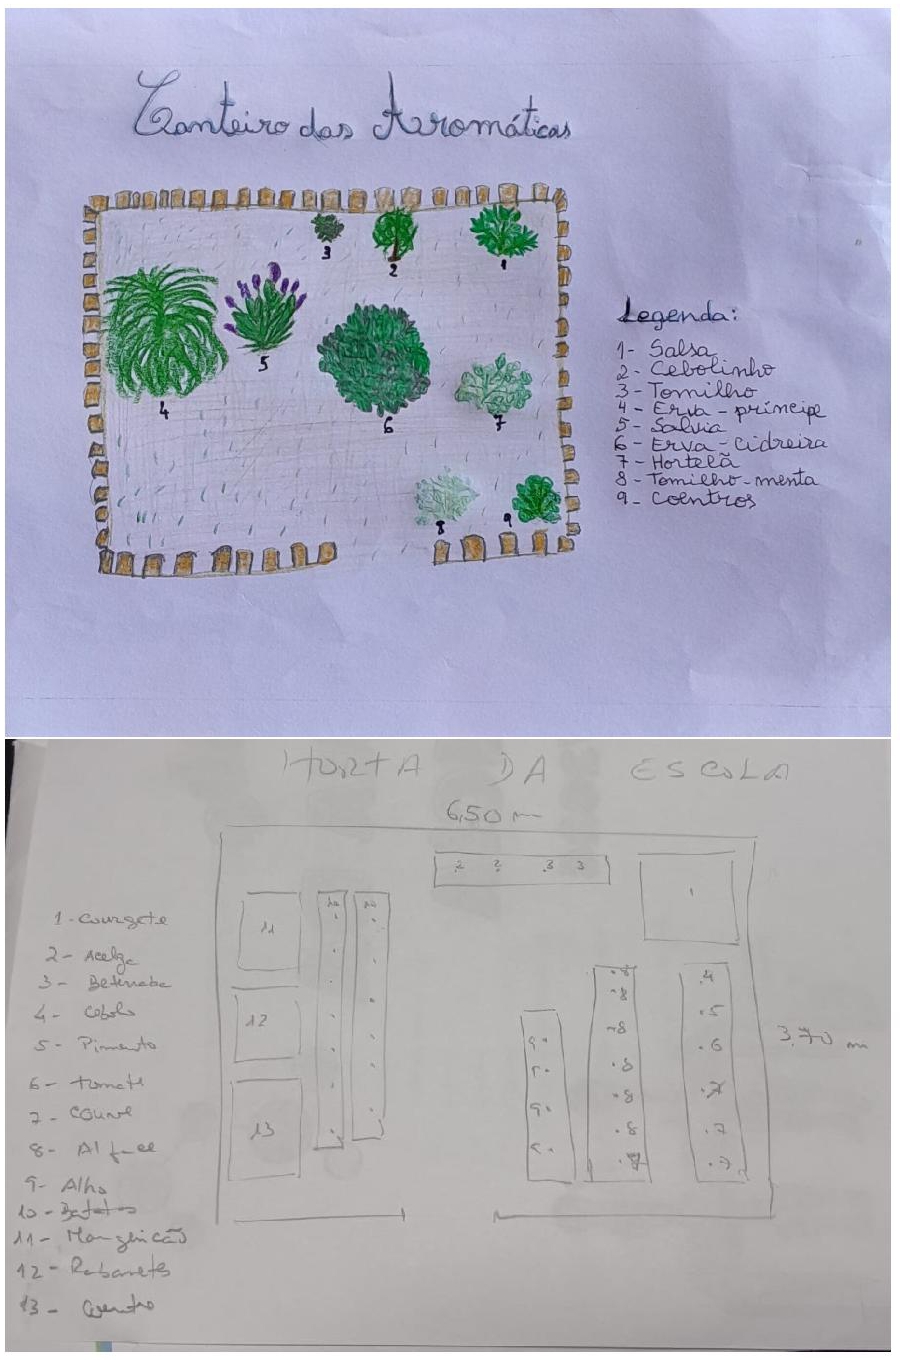 Canteiro das Aromáticas
3
2
1
4
5
6
7
8
9
Legenda:
1- Salsa
2- Cebolinho
3- Tomilho
4- Erva-príncipe
5- Salvia
6- Erva-cidreira
7- Hortelã
8- Tomilho-menta
9- Coentros
HORTA DA ESCOLA
6,50 m
2 2 3 3
1
11
12
13
10 10
8
8
8
8
8
8
4
5
6
7
7
7
9
9
9
3,70 m
1- Courgete
2- Acelga
3- Beterraba
4- Cebola
5- Pimento
6- tomate
7- Couve
8- Alface
9- Alho
10- Batatas
11- Mangericão
12- Rabanetes
13- Coentro